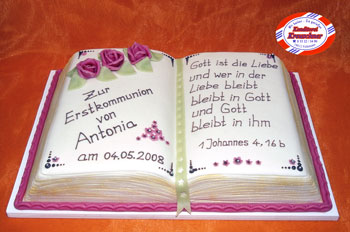 Zur
Erstkommunion
von
Antonia
am 04.05.2008
Gott ist die Liebe
und wer in der
Liebe bleibt
bleibt in Gott
und Gott
bleibt in ihm
1 Johannes 4, 16b